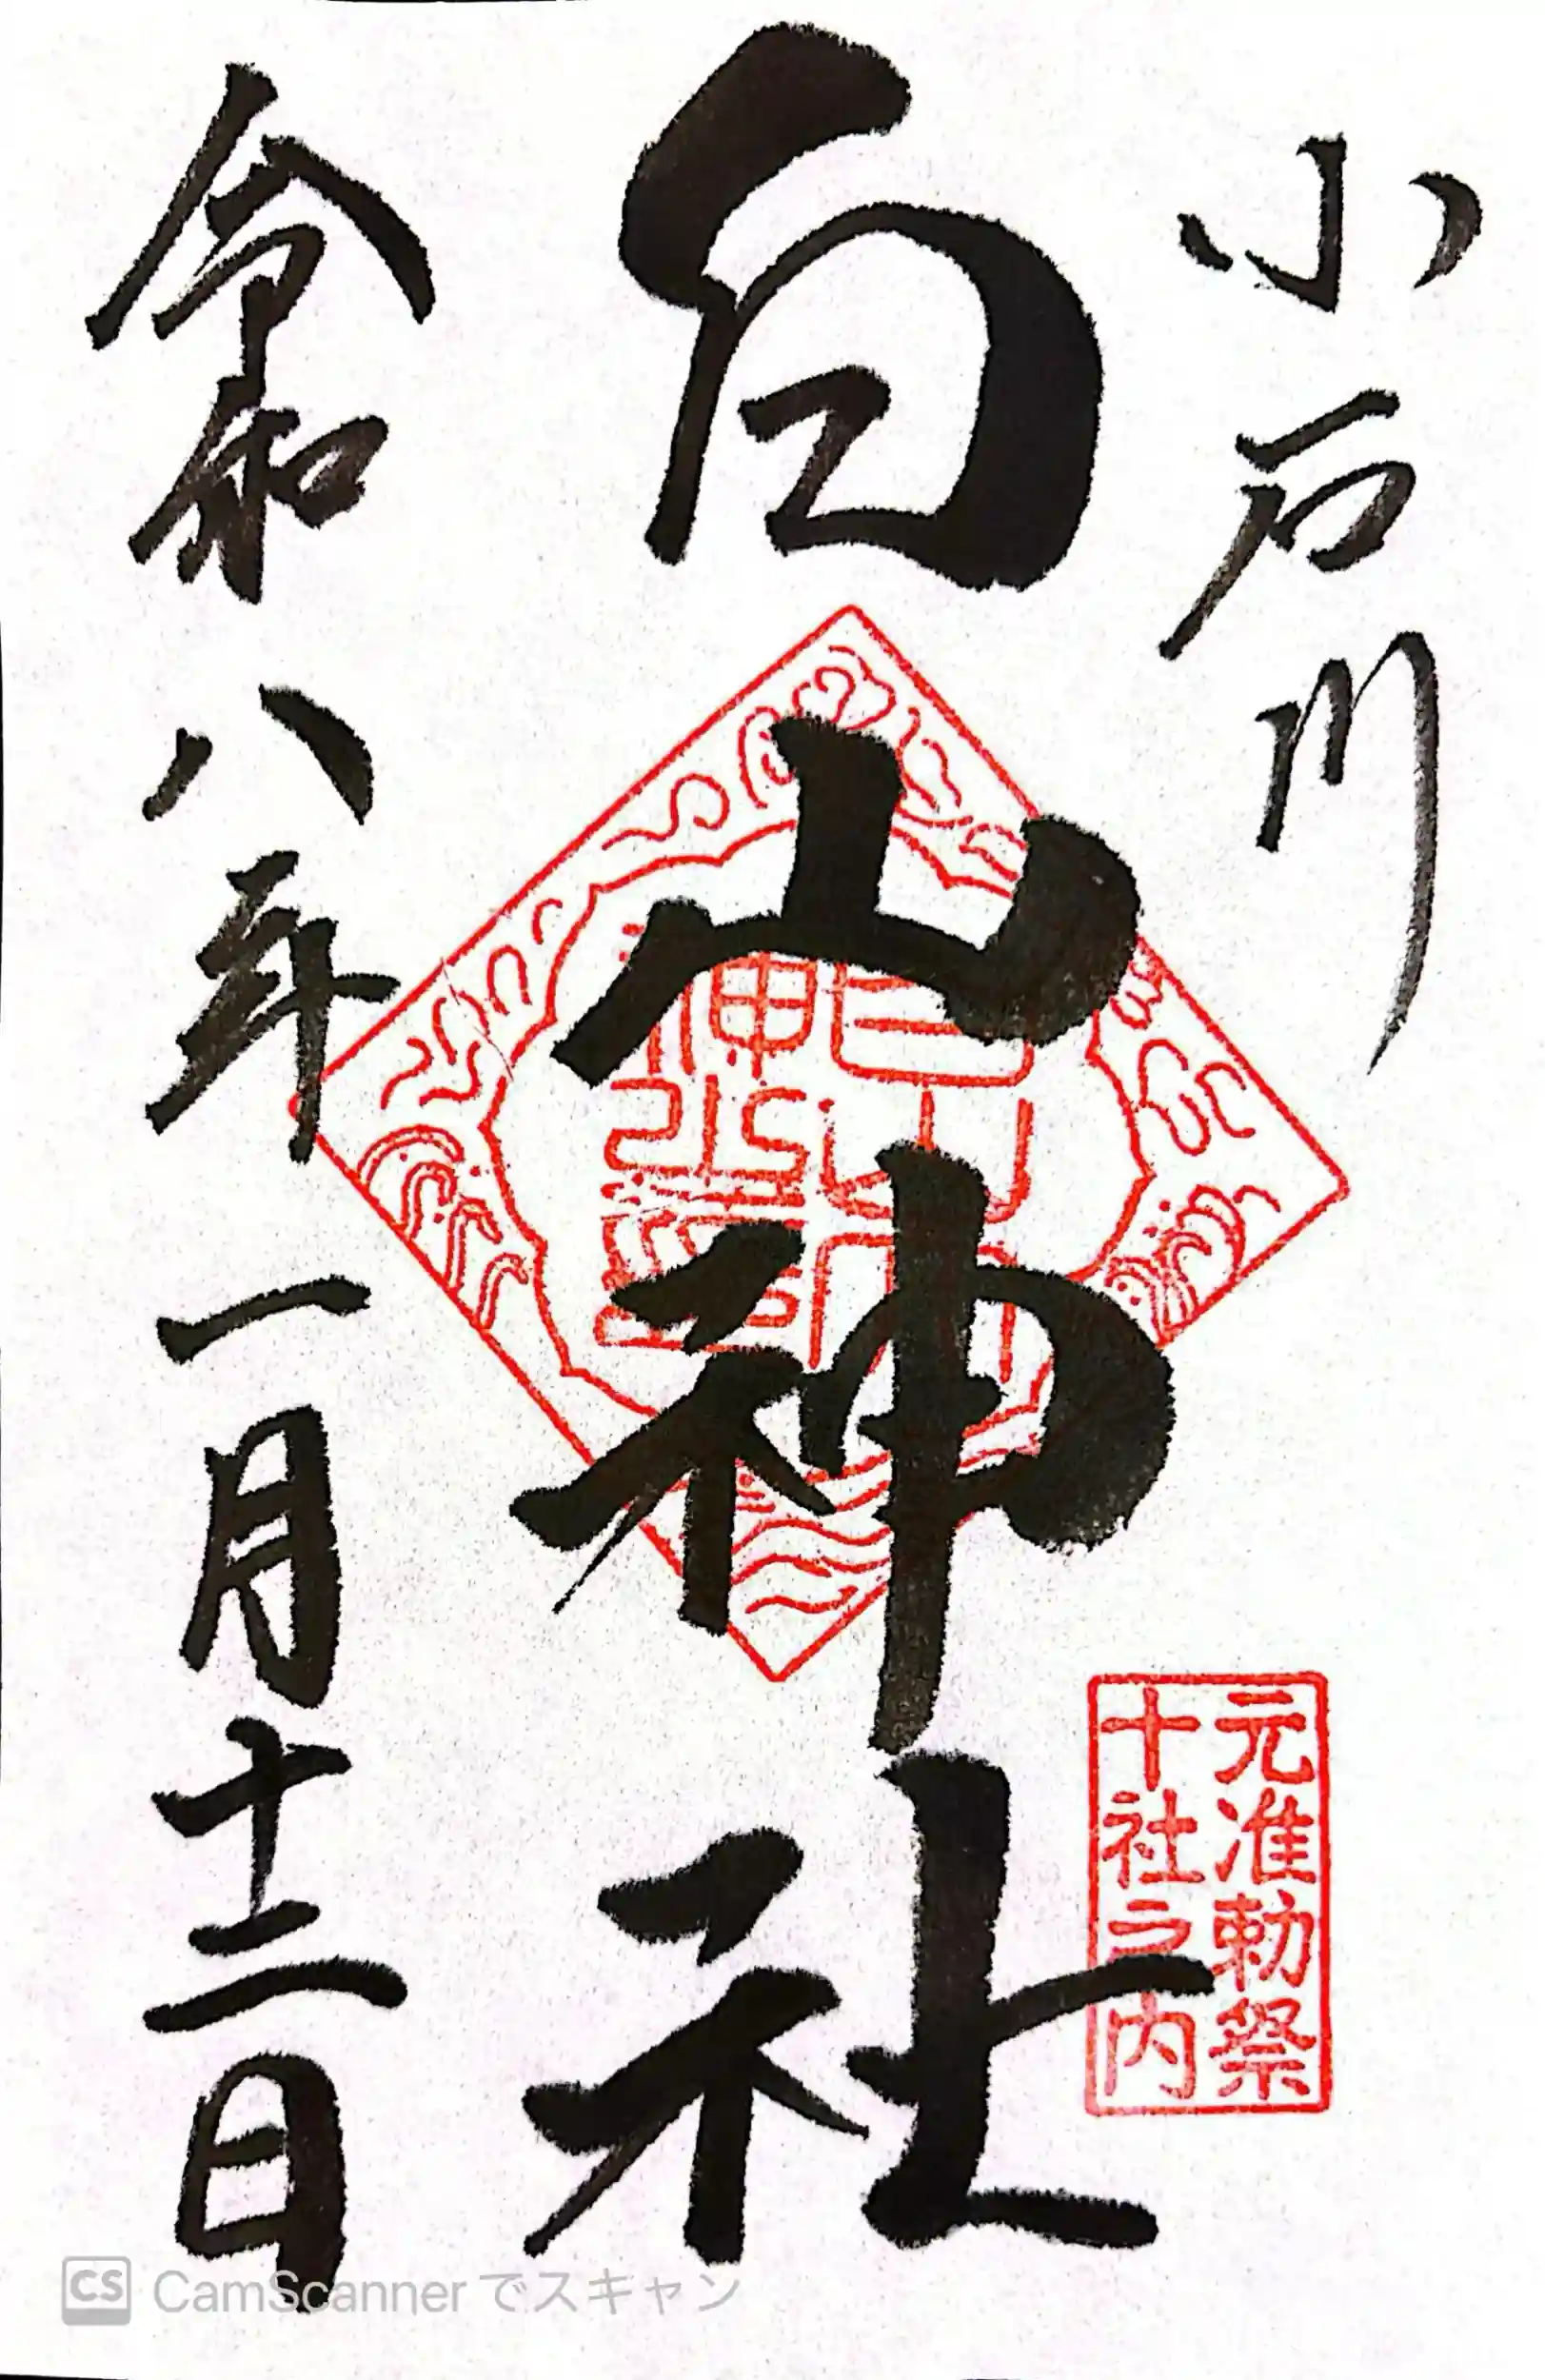 小石川
白山神社
令和八年一月十二日
白山神社璽
元准勅祭
十社之内
CS CamScanner でスキャン